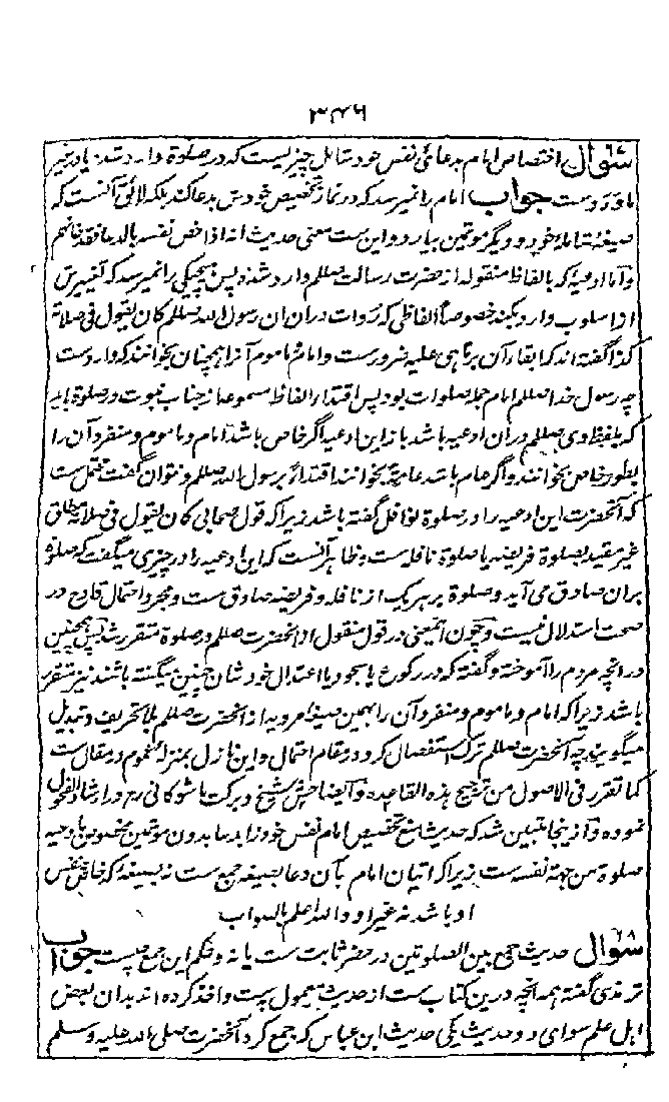 ۳۴۶
سوال ۶۷ اختصاص امام بدعائی نفس خود شامل چیزیست که در صلوة وارد شده یا در غیر
ماورد ست جواب امام را نمیرسد که در نماز تخصیص خودش بدعا کند بلکه لائق آنست که
صیغهٔ شامله خود و دیگر موتمین بیارد و این ست معنی حدیث انه اذا خص نفسه بالدعا فقد خانهم
و اما ادعیهٔ که بالفاظ منقوله از حضرت رسالت صلعم وارد شده پس هیچیکی را نمیرسد که تغییرش
از اسلوب وارد بکند خصوصاً الفاظی که روات دران ان رسول الله صلعم کان یقول فی صلاته
کذا گفته اند که ابقاء آن بر ماهی علیه ضرورست و امام و ماموم آنرا همچنان بخوانند که واردست
چه رسول خدا صلعم امام جمله صلوات بود پس اقتدا در الفاظ مسموعه از جناب نبوت در صلوة باید
که بلفظ وی صلعم دران ادعیه باشد باز این ادعیه اگر خاص باشد امام و ماموم و منفرد آن را
بطور خاص بخوانند و اگر عام باشد عامةً بخوانند اقتداءً برسول الله صلعم و نتوان گفت محتمل ست
که آنحضرت این ادعیه را در صلوة نوافل گفته باشد زیرا که قول صحابی کان یقول فی صلاته مطلق
غیر مقید بصلوة فریضه یا صلوة نافله ست و ظاهر آنست که این ادعیه را در چیزی میگفت که صلوة
بران صادق می آید و صلوة بر هر یک از نافله و فریضه صادق ست و مجرد احتمال قادح در
صحت استدلال نیست و چون اینمعنی در قول منقول از آنحضرت صلعم در صلوة متقرر شد پس همچنین
در انچه مردم را آموخته و گفته که در رکوع یا سجود یا اعتدال خودشان چنین میگفته باشند نیز متقرر
باشد زیرا که امام و ماموم و منفرد آن را بهمین صیغهٔ مرویه از آنحضرت صلعم بلا تحریف و تبدیل
میگویند چه آنحضرت صلعم ترک استفصال کرد در مقام احتمال و این نازل بمنزلهٔ عموم در مقال ست
کما تقرر فی الاصول من ترجیح هذه القاعده و ایضاحش شیخ و برکت ما شوکانی رح در ارشاد الفحول
نموده و از ینجا متبین شد که حدیث منع تخصیص امام نفس خود را بدعا بدون موتمین مخصوص بادعیه
صلوة من جهة نفسه ست زیرا که اتیان امام بآن دعا بصیغه جمع ست نه بصیغهٔ که خاص بنفس
او باشد نه غیر او والله اعلم بالصواب
سوال ۶۸ حدیث جمع بین الصلوتین در حضر ثابت ست یا نه و حکم این جمع چیست جواب
ترمذی گفته همه انچه درین کتاب ست از حدیث معمول به ست و اخذ کرده اند بدان بعض
اهل علم سوای دو حدیث یکی حدیث ابن عباس که جمع کرد آنحضرت صلی الله علیه وسلم